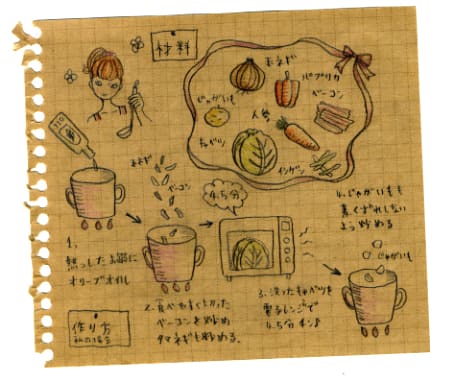 材料
玉ネギ
パプリカ
ベーコン
じゃがいも
人参
キャベツ
インゲン
玉ネギ
ベーコン
4.5分
1.
熱っしたお鍋に
オリーブオイル
2. 食べやすく切った
ベーコンを炒め
タマネギも炒める。
3. 洗ったキャベツを
電子レンジで
4.5分チン♪
4. じゃがいもも
煮くずれしない
よう炒める
じゃがいも
作り方
私の場合